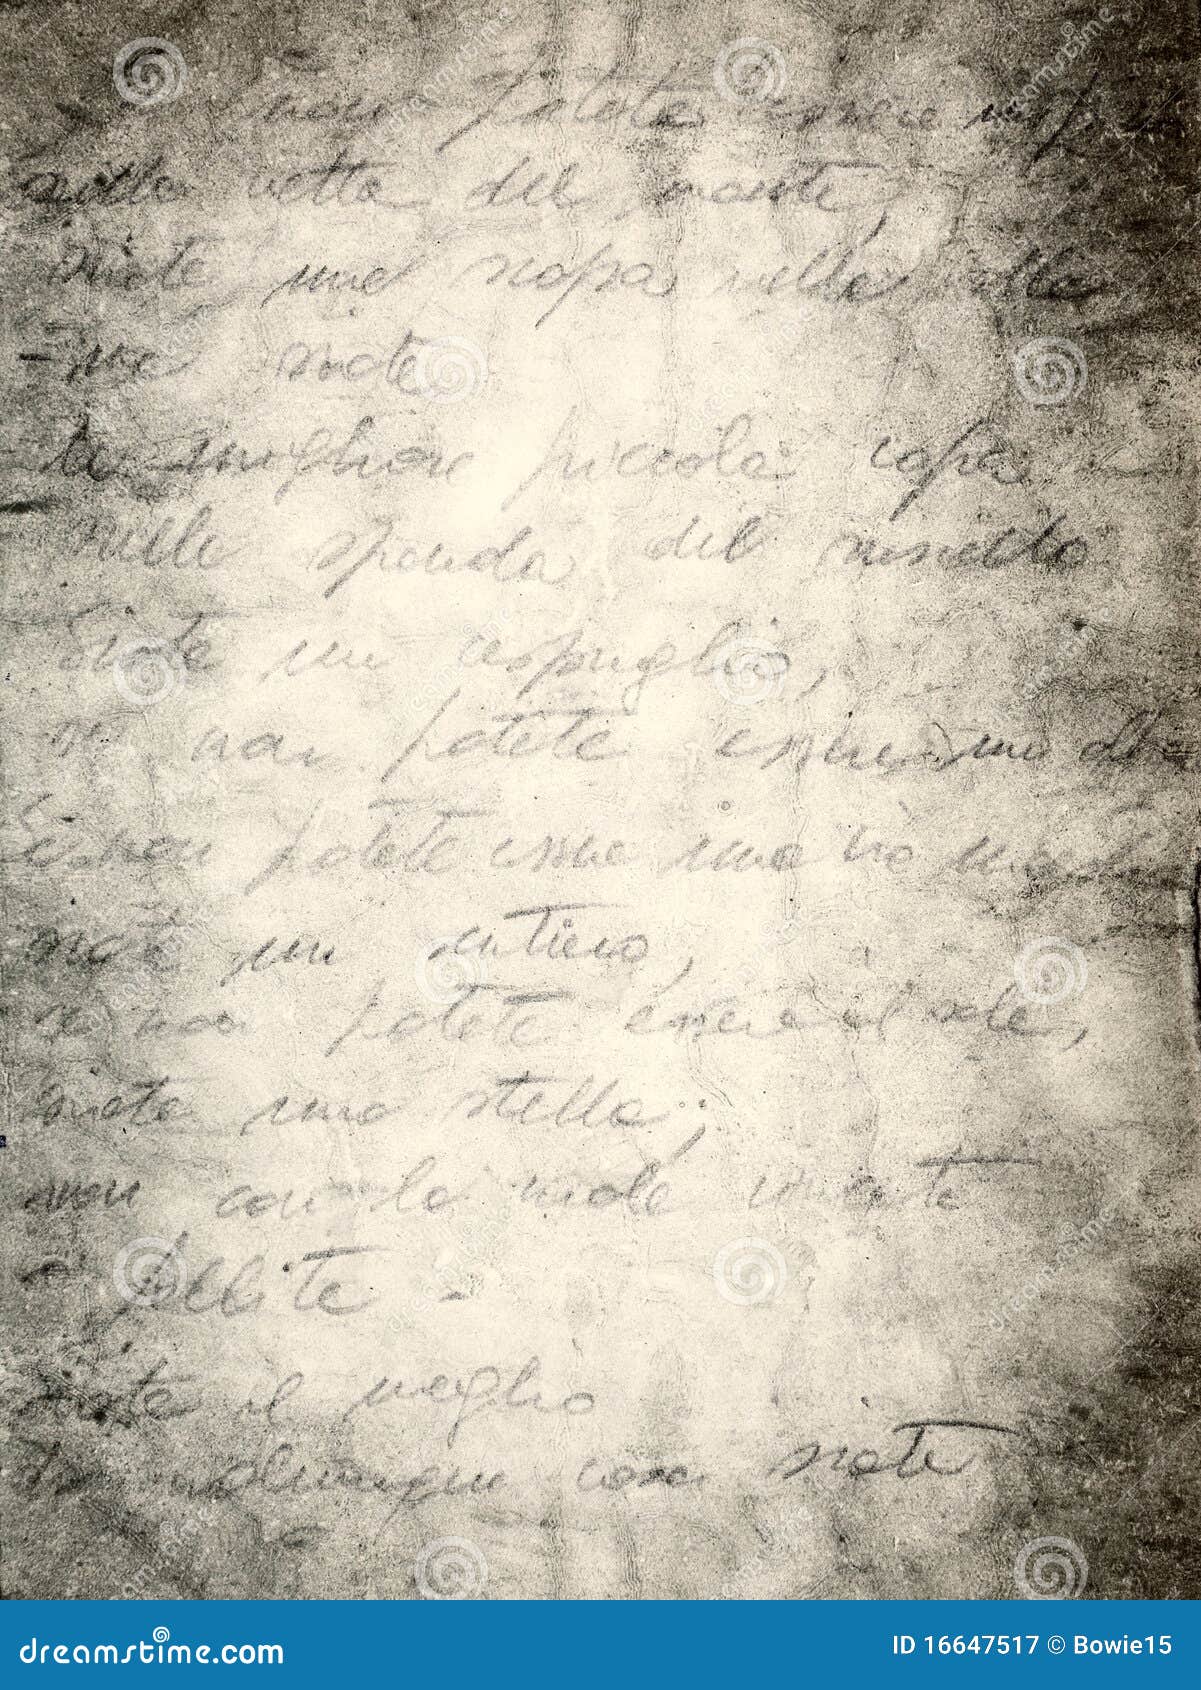 non potete essere un p
sulla vetta del monte,
siate una scopa nella valle
- ma siate
la migliore piccola scopa
sulla sponda del ruscello
Siate un cespuglio,
se non potete essere un al
Se non potete essere una via maestra
siate un sentiero,
se non potete essere il sole,
siate una stella;
non con la mole vincete
o fallite -
Siate il meglio
di qualunque cosa siate
dreamstime.com
ID 16647517 © Bowie15